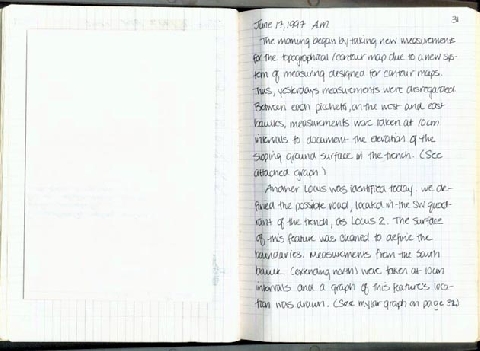 31
June 17, 1997 A.M.
The morning began by taking new measurements
for the topographical/contour map due to a new sys-
tem of measuring designed for contour maps.
Thus, yesterdays measurements were disregarded.
Between each picchetti, on the west and east
baulks, measurements were taken at 10cm
intervals to document the elevation of the
sloping ground surface in the trench. (See
attached graph)
Another Locus was identified today. We de-
fined the possible road, located in the SW quad-
rant of the trench, as Locus 2. The surface
of this feature was cleaned to define the
boundaries. Measurements from the South
baulk (extending north) were taken at 10cm
intervals and a graph of this feature's loca-
tion was drawn. (See mylar graph on page 32)